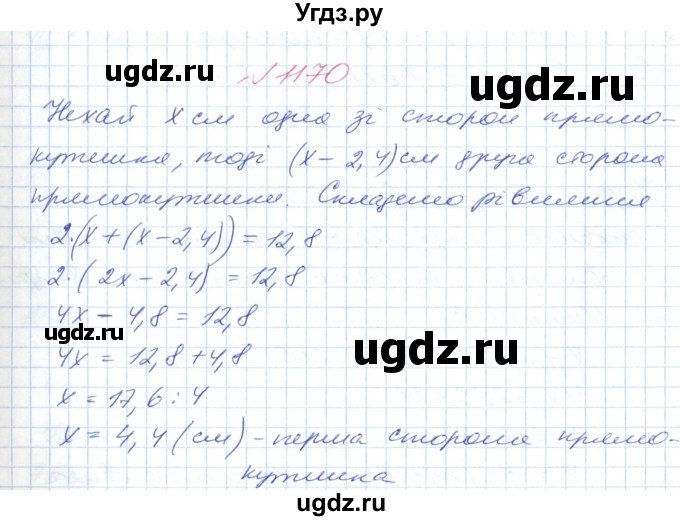 Угдз.ру
№1170
Нехай x см одна зі сторон прямо-
кутника, тоді (x - 2,4) см друга сторона
прямокутника. Складемо рівняння
2·(x + (x - 2,4)) = 12,8
2·(2x - 2,4) = 12,8
4x - 4,8 = 12,8
4x = 12,8 + 4,8
x = 17,6 : 4
x = 4,4 (см) - перша сторона прямо-
кутника
ugdz.ru
ugdz.ru
ugdz.ru
ugdz.ru
ugdz.ru
ugdz.ru